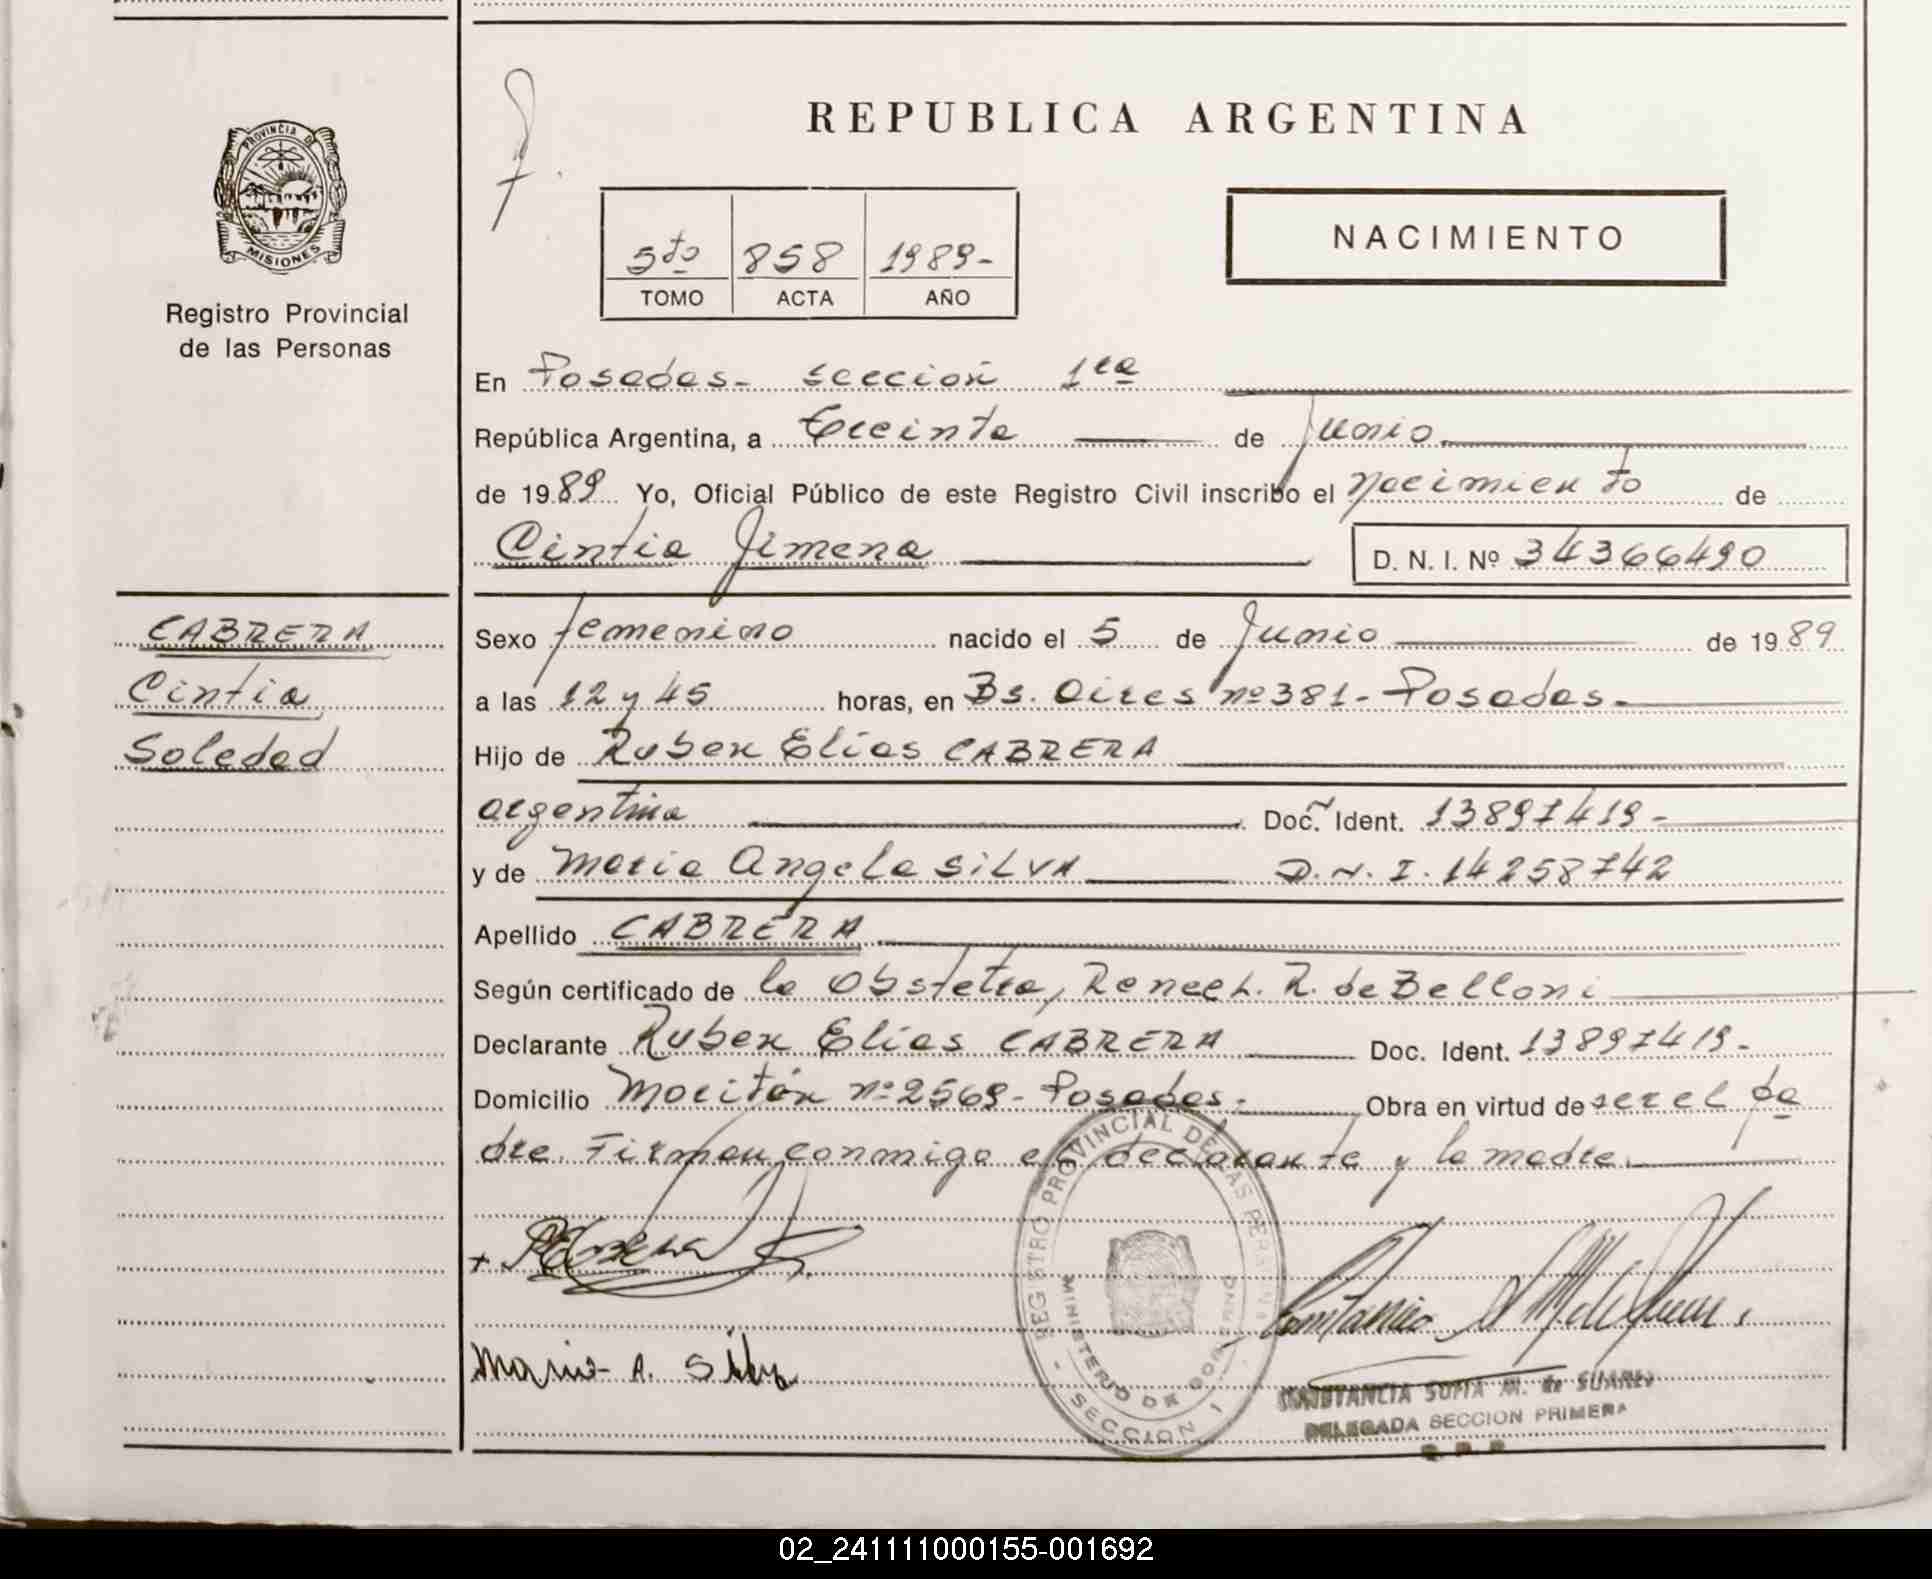 REPUBLICA ARGENTINA
PROVINCIA D
MISIONES
Registro Provincial
de las Personas
5to 858 1989-
TOMO ACTA AÑO
NACIMIENTO
En Posadas- sección 1ra
República Argentina, a treinta de Junio
de 1989 Yo, Oficial Público de este Registro Civil inscribo el nacimiento de
Cintia Jimena D. N. I. Nº 34366490
CABRERA
Cintia
Soledad
Sexo femenino nacido el 5 de Junio de 1989
a las 12 y 45 horas, en Bs. Aires nº 381- Posadas-
Hijo de Ruben Elías CABRERA
argentina Doc. Ident. 13897419-
y de Maria Angela SILVA D.N.I. 14258742
Apellido CABRERA
Según certificado de la Obstetra, Renee L. R. de Belloni
Declarante Ruben Elías CABRERA Doc. Ident. 13897419-
Domicilio Moritán nº 2569- Posadas- Obra en virtud de ser el pa
dre. Firman conmigo el declarante y la madre.
Maria A. Silva
REGISTRO PROVINCIAL DE LAS PERSONAS
MINISTERIO DE GOBIERNO
- SECCION 1 -
CONSTANCIA SOFIA M. de SUAREZ
DELEGADA SECCION PRIMERA
02_241111000155-001692